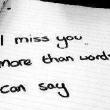 I miss you
more than words
can say